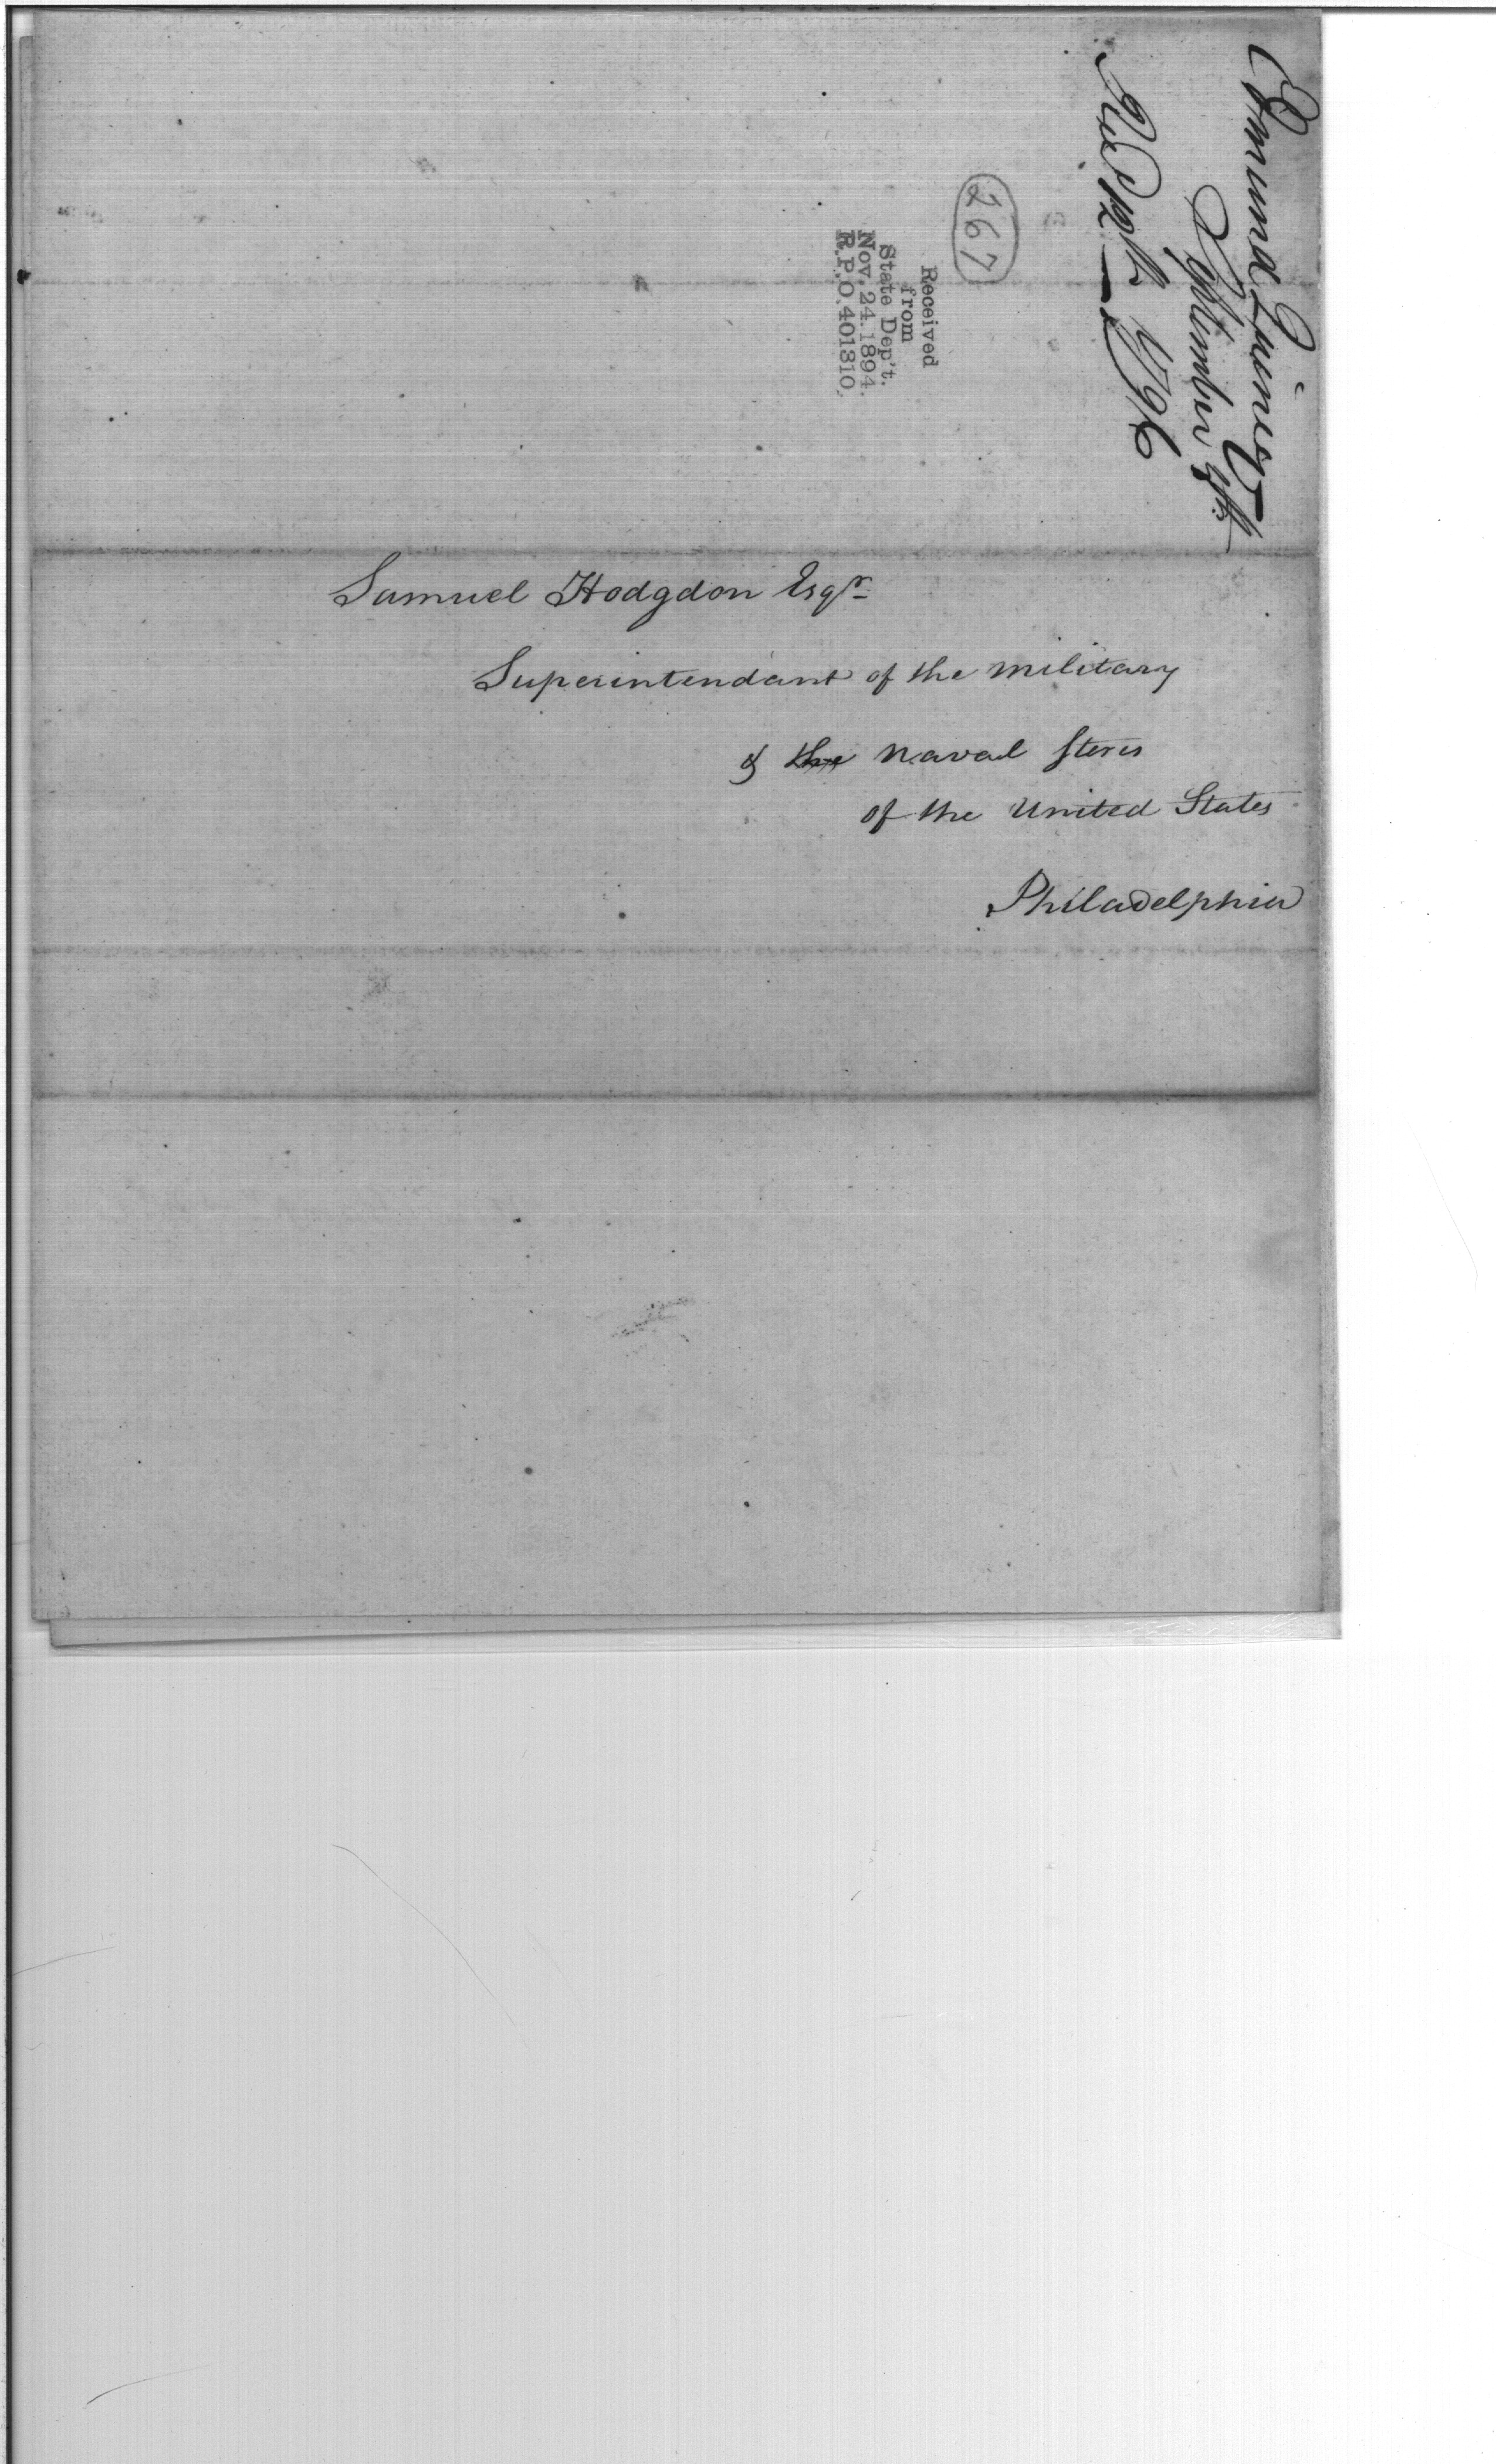 Edmund Quincy
September 9th
Rec'd 19th 1796
267
Received
from
State Dep't.
Nov. 24. 1894.
R.P.O. 401310.
Samuel Hodgdon Esqr
Superintendant of the military
& the naval stores
of the United States
Philadelphia